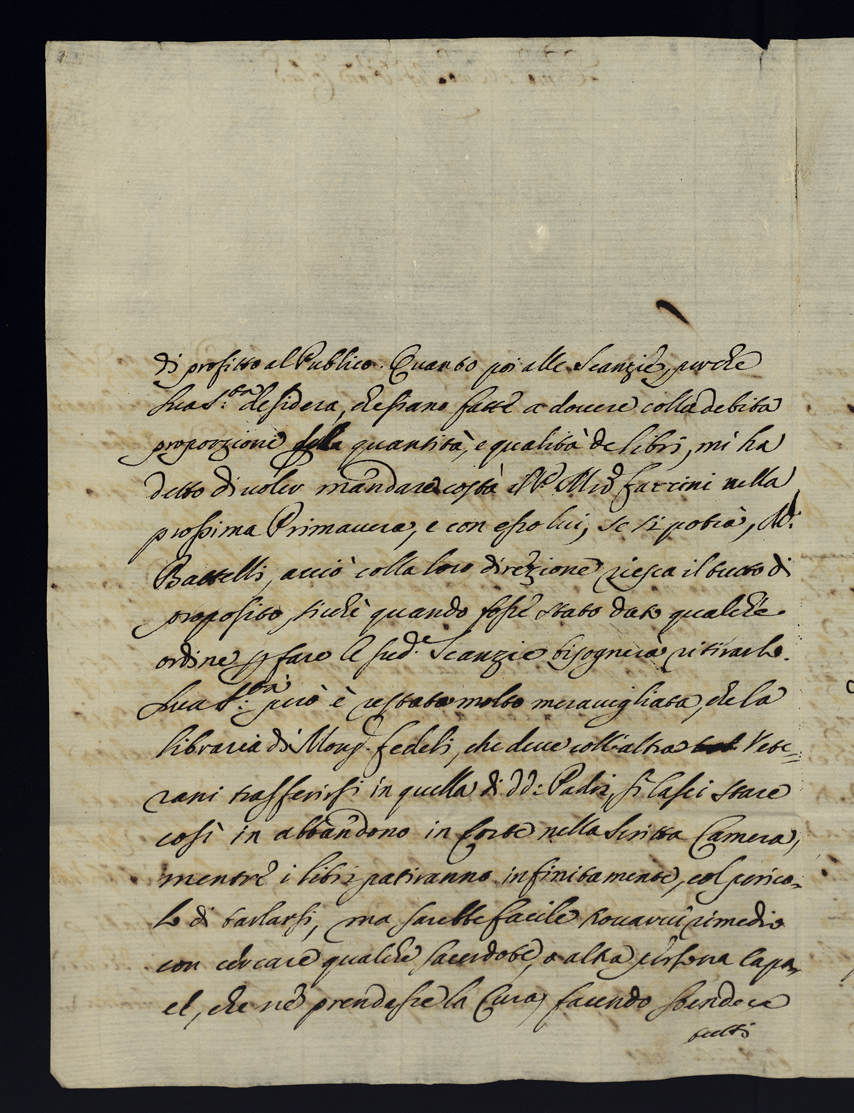 di profitto al Publico. Quanto poi alle Scanzie, perche
Sua S.tà desidera, che siano fatte a dovere colla debita
proporzione della quantità, e qualità de libri, mi ha
detto di voler mandare costà il Farrini nella
prossima Primavera, e con esso lui, se si potrà, M.
Battelli, acciò colla loro direzione riesca il tutto di
proposito, sicchè quando fosse stato dato qualche
ordine p fare le sud.e Scanzie bisognerà ritirarlo.
Sua S.tà però è restata molto meravigliata, che la
libraria di Mons.r Fedeli, che deve coll'altra Vete=
rani trasferirsi in quella di dd: Padri, si lasci stare
così in abbandono in Corte nella Camera,
mentre i libri patiranno infinitamente, col perico-
lo di tarlarsi, ma sarebbe facile trovarvi rimedio
con cercare qualche sacerdote, o altra persona capa-
ce, che ne prendesse la Cura, facendo stendere
tutti